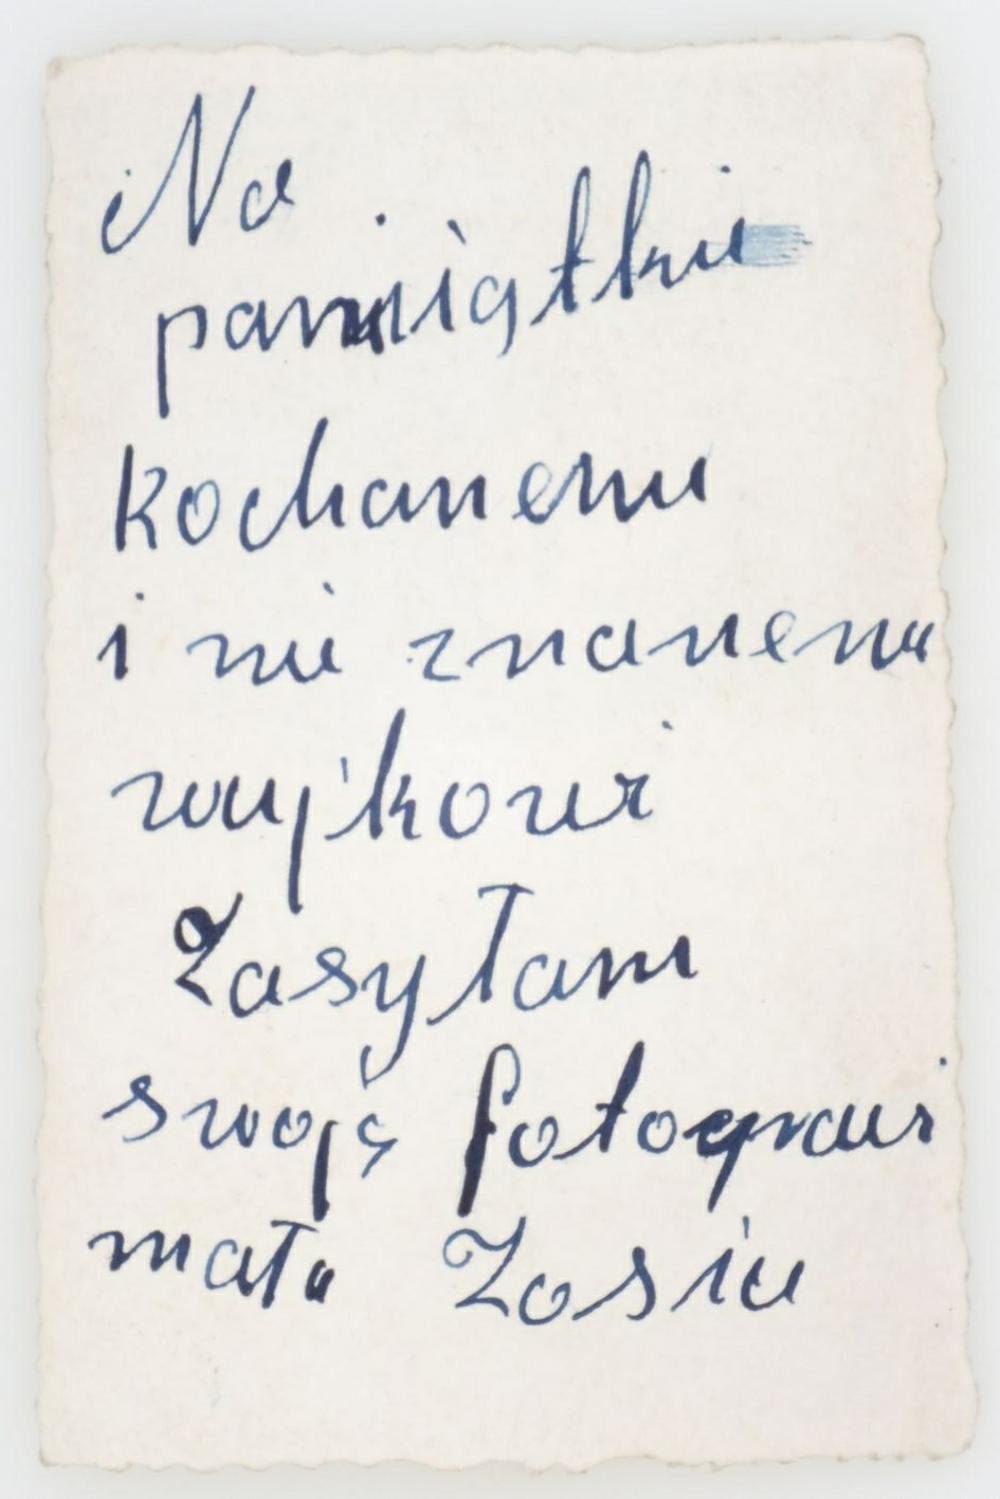 Na
pamiątkie
kochanemu
i nie znanemu
wujkowi
Zasyłam
swoję fotograwi
mała Zosia